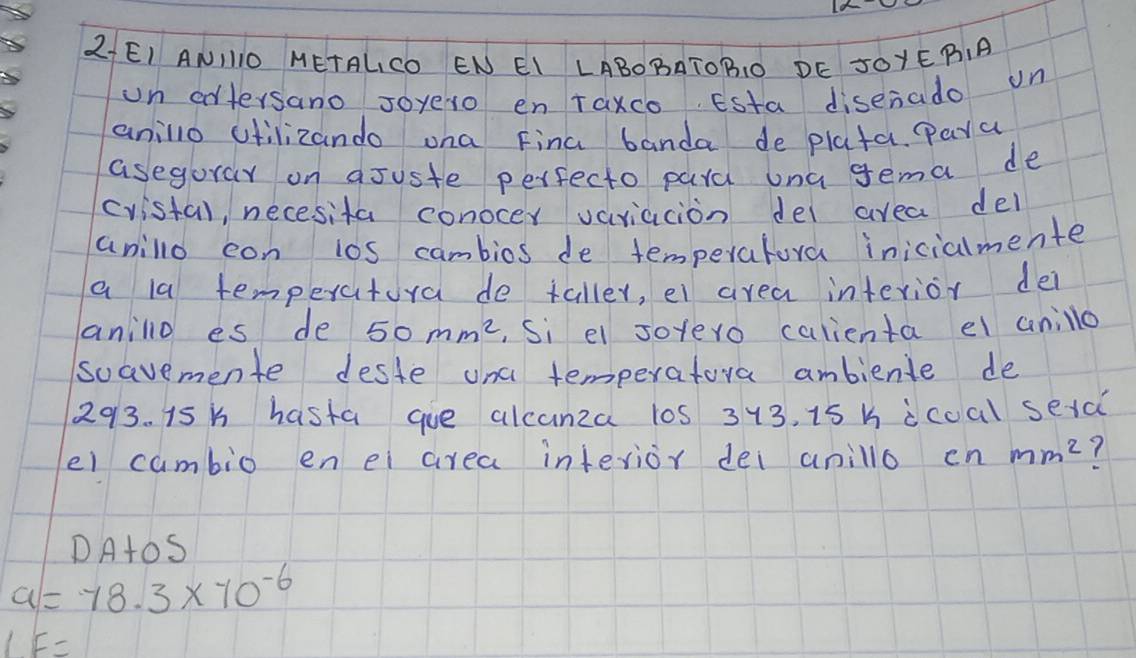 2-El ANIllO METALICO EN El LABORATORIO DE JOYERIA
un artersano Joyero en Taxco. Esta diseñado un
anillo utilizando una Fina banda de plata. Para
asegurar un aJuste perfecto para una gema de
cristal, necesita conocer variación del area del
anillo con los cambios de temperatura inicialmente
a la temperatura de taller, el area interiór del
anillo es de 50 mm². Si el Joyero calienta el anillo
suavemente deste una temperatura ambiente de
293.15 K hasta que alcanza los 343.15 K ¿cual será
el cambio en el area interiór del anillo en mm²?
DAtOS
a= 18.3 x 10⁻⁶
LF=